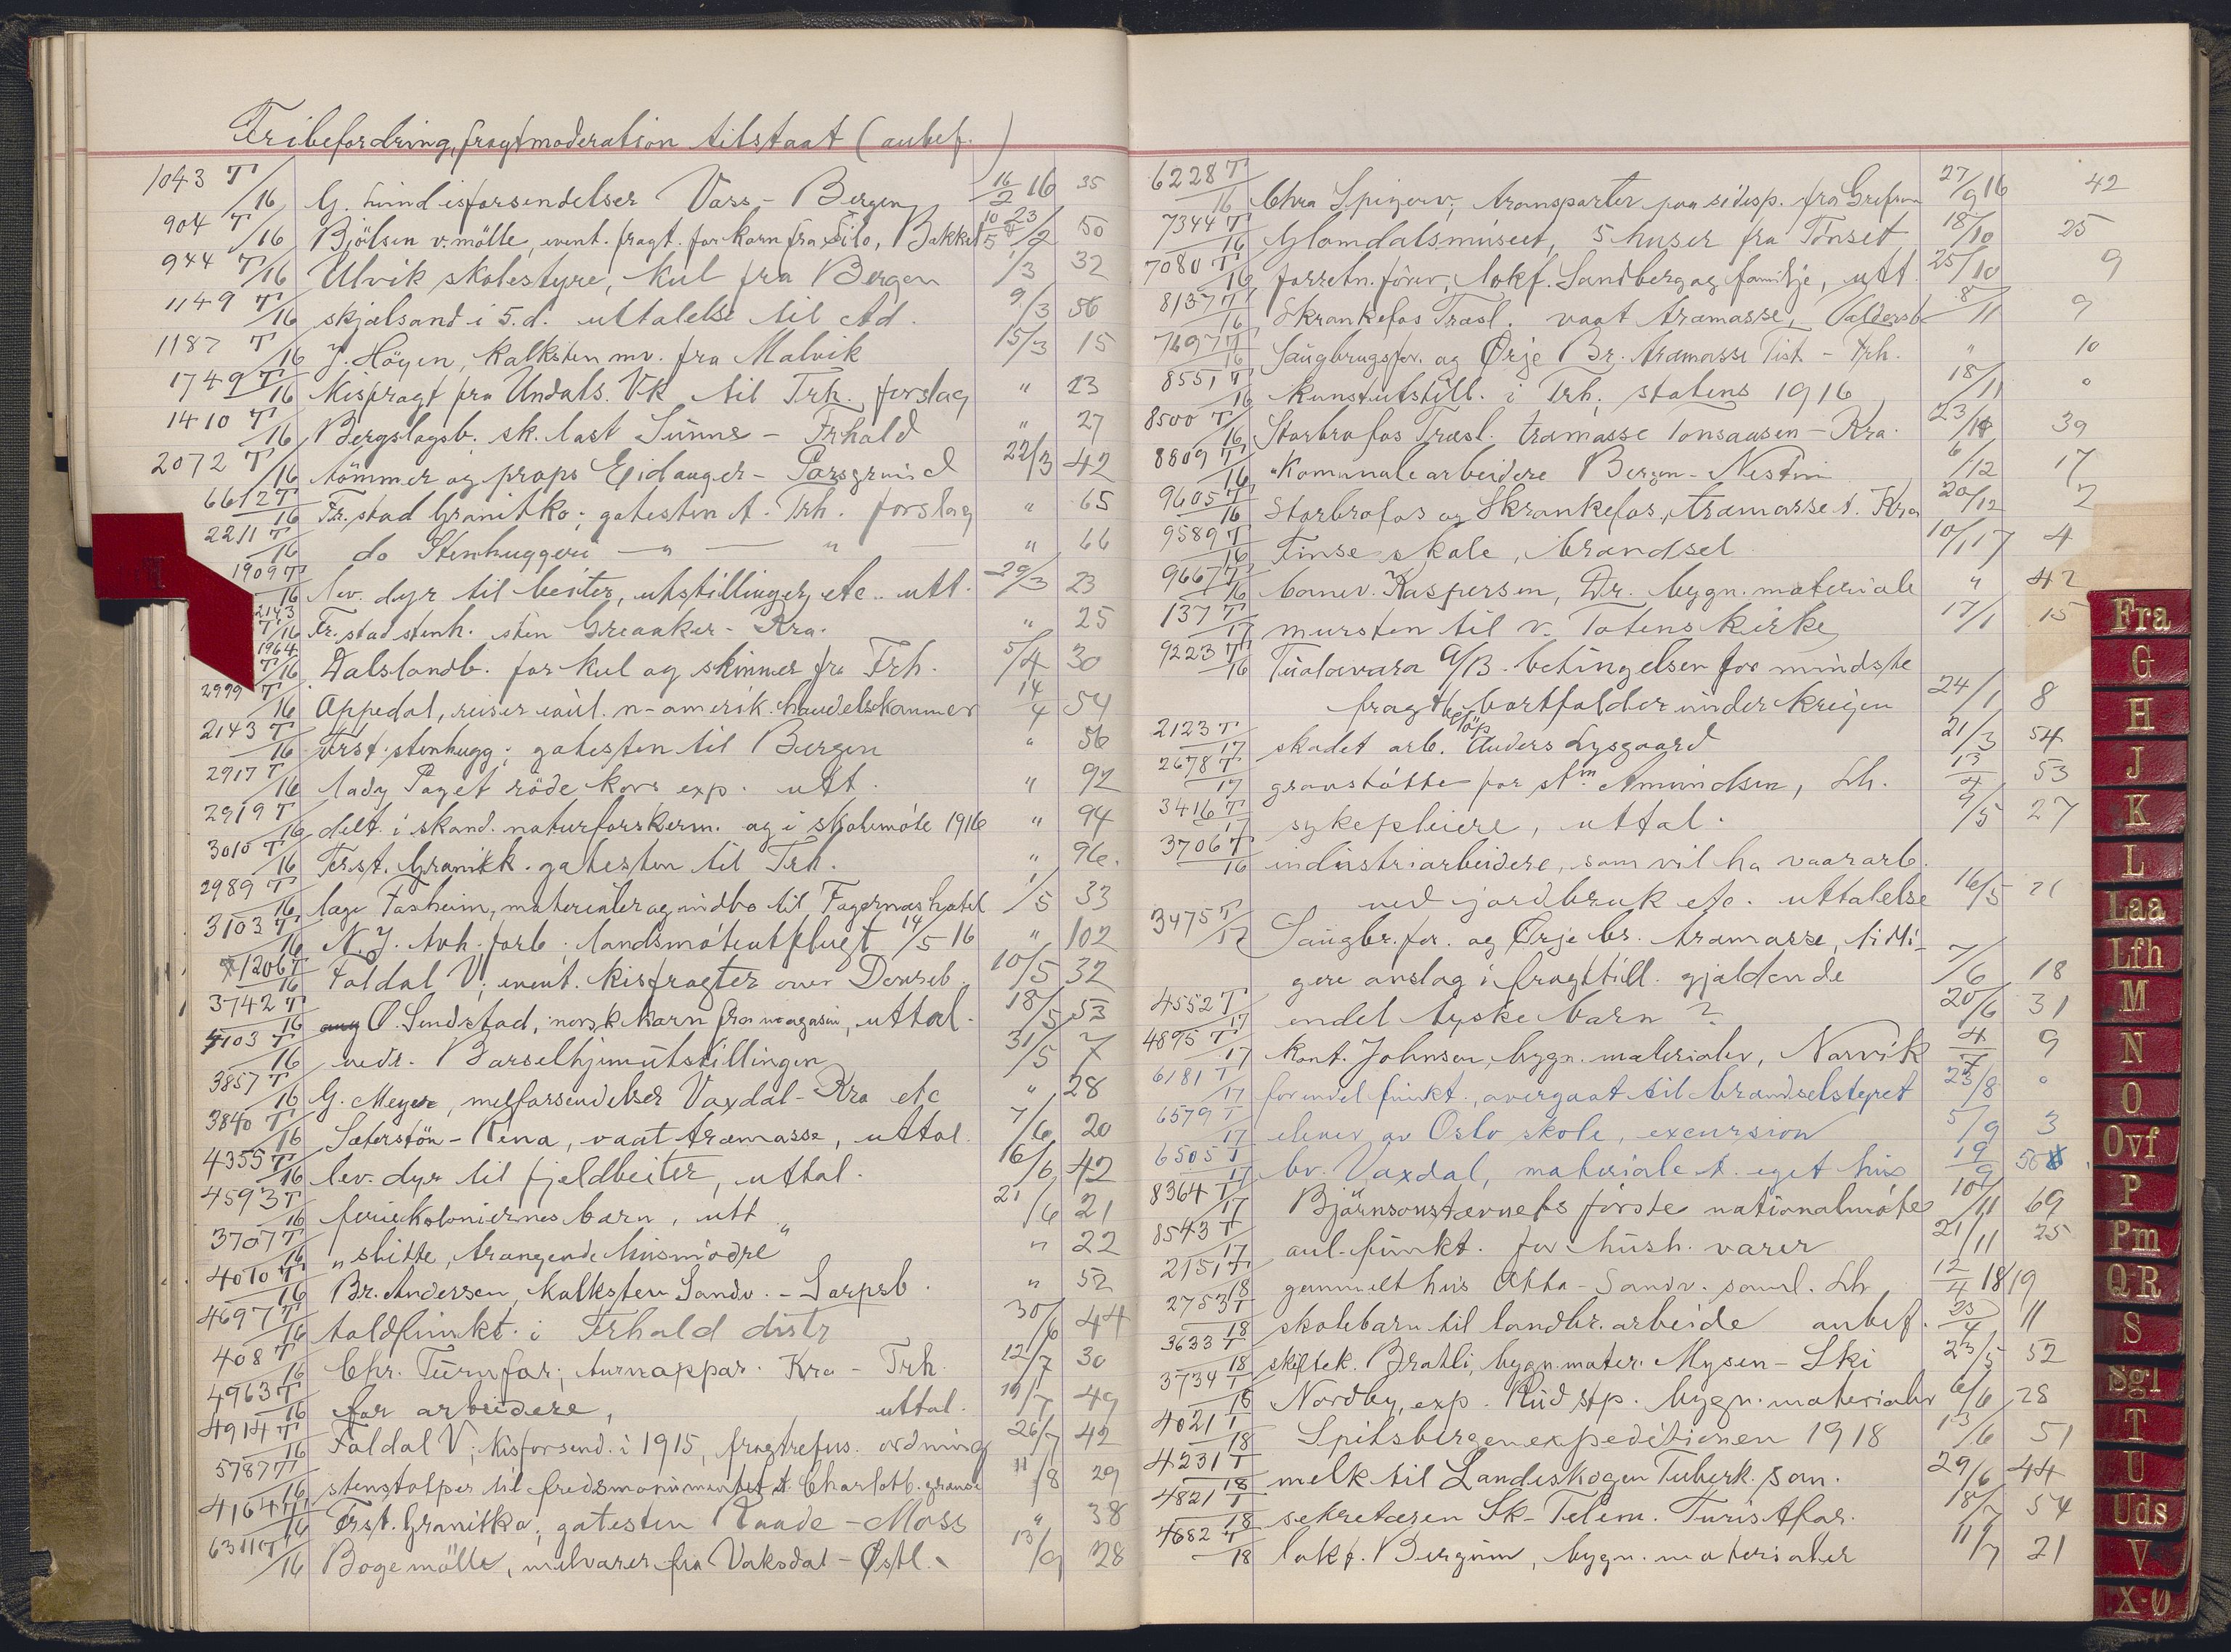 Fribefordring, fragtmoderation tilstaat (anbef. )
1043 T/16 G. hundisforsendelser Voss - Bergen 16/2 16 35
904 T/16 Bjölsen v. mölle, event. fragt. for korn fra Silo, Bakke 50
944 T/16 Ulvik skolestyre, kul fra Bergen 1/3 32
1149 T/16 skjælsand i 5. d. uttalelse til Ad. 9/3 56
1187 T/16 J. Höyen, kalksten mv. fra Malvik 15/3 15
1749 T/16 Kisfragt fra Undals. Vk til Trh. forslag " 23
1410 T/16 Bergslagsb. sk. last Sunne - Frhald " 27
2072 T/16 tömmer og props Eidanger - Porsgrund 22/3 42
6612 T/16 Fr.stad Granitko. gatesten t. Trh. forslag " 65
2211 T/16 do Stenhuggeri — " — " — " 66
1909 T/16 lev. dyr til beiter, utstillinger etc. utt. 29/3 23
2143 T/16 Fr. stad stenh. sten Greaaker - Kra. " 25
1964 T/16 Dalslandb. for kul og skinner fra Frh. 5/4 30
2999 T/16 Appedal, reiser n-amerik. handelskammer 14/4 54
2143 T/16 Frst. stenhugg. gatesten til Bergen " 56
2917 T/16 lady Paget röde kors exp. utt. " 92
2919 T/16 delt. i skand. naturforskerm. og i skolemöte 1916 " 94
3010 T/16 Frst. Granitk. gatesten til Trh. " 96.
2989 T/16 læge Fasheim, materialer og indbo til Fagernes hotel 1/5 33
3103 T/16 N. J. Avh. forb. landsmöteutflugt 14/5 16 " 102
1206 T/16 Foldal V; event. kisfragter over Dovreb. 10/5 32
3742 T/16 O. Sendstad, norsk korn fra magasin, uttal. 18/5 53
4103 T/16 vedr. Barselhjemutstillingen 31/5 7
3857 T/16 G. Meyer, melforsendelser Vaxdal - Kra etc " 28
3840 T/16 Sæterstön - Rena, vaat træmasse, uttal. 7/6 20
4355 T/16 lev. dyr til fjeldbeiter, uttal. 16/6 42
4593 T/16 feriekoloniernes barn, utt 21/6 21
3707 T/16 "slitte, trængende husmödre" " 22
4010 T/16 Br. Andersen, kalksten Sandv. - Sarpsb. " 52
4697 T/16 toldfunkt. i Frhald distr 30/6 44
408 T/16 Chr. Turnfor; turnappar. Kra - Trh. 12/7 30
4963 T/16 for arbeidere, uttal. 19/7 49
4914 T/16 Foldal V; Kisforsend. i 1915, fragtrefus. ordning 26/7 42
5787 T/16 stenstolper til fredsmonumentet t. Charlottb. grænse 11/8 29
4164 T/16 Frst. Granitko, gatesten Raade - Moss " 38
6311 T/16 Boge mölle, melvarer fra Vaksdal - Østl. 13/9 28
6228 T/16 Chra Spigerv; transporter paa sidesp. fra Grefsen 27/9 16 42
7344 T/16 Glomdalsmuseet, 5 huser fra Tönset 18/10 25
7080 T/16 forretn. förer, lokf. Sandberg og familje, utt. 25/10 9
8137 T/16 Skrankefos Træsl. vaat træmasse, Valdersb 8/11 9
7697 T/16 Saugbrugsfor. og Ørje Br. træmasse Tist - Frh. " 10
8551 T/16 Kunstutstill. i Trh. statens 1916 18/11 0
8500 T/16 Storbrofos Træsl. træmasse Tonsaasen - Kra. 23/11 39
8809 T/16 "Komunale arbeidere Bergen - Nestun 6/12 17
9605 T/16 Storbrofos og Skrankefos, træmasse t. Kra 20/12 2
9589 T/16 Finse skole, brændsel 10/1 17 4
9667 T/16 banev. Kaspersen, Dr. bygn. materiale " 42
137 T/17 mursten til v. Totens kirke 17/1 15
9223 T/16 Tuolavara A/B. betingelsen for mindste
fragtbelöp bortfalder under krigen 24/1 8
2123 T/17 skadet arb. Anders Lysgaard 21/3 54
2678 T/17 gravstötte for stm Amundsen, Lh. 13/4 53
3416 T/17 sykepleiere, uttal. 9/5 27
3706 T/16 industriarbeidere, som vil ha vaararb.
ved jordbruk etc. uttalelse 16/5 21
3475 T/17 Saugbr. for. og Ørje br. træmasse, tidli-
gere anslag i fragttill. gjældende 7/6 18
4552 T/17 endel tyske barn ? 20/6 31
4895 T/17 kont. Johnsen, bygn. materialer, Narvik 4/7 9
6181 T/17 for endel funkt., overgaat til brændselstyret 23/8 0
6579 T/17 elever av Oslo skole, excursion 5/9 3
6505 T/17 bv. Vaxdal, materiale t. eget hus 19/9 50
8364 T/17 Björnsonstævnets förste nationalmöte 10/11 69
8543 T/17 anl. funkt. for hush. varer 21/11 25
2151 T/18 gammelt hus Otta - Sandv. saml. Lh 12/4 18 19
2753 T/18 skolebarn til landbr. arbeide anbef. 23/4 11
3633 T/18 skiltek. Bratli, bygn. mater. Mysen - Ski 23/5 52
3734 T/18 Nordby, exp. Rud stp. bygn. materialer 6/6 28
4021 T/18 Spitsbergenexpeditionen 1918 13/6 51
4231 T/18 melk til Landeskogen Tuberk. san. 29/6 44
4821 T/18 sekretæren Sk-Telem. Turistfor. 18/7 54
4682 T/18 lokf. Bergum, bygn. materialer 11/7 21
Fra
G
H
J
K
L
Laa
Lfh
M
N
O
Ovf
P
Pm
QR
S
Sgl
T
U
Uds
V
X-Ø